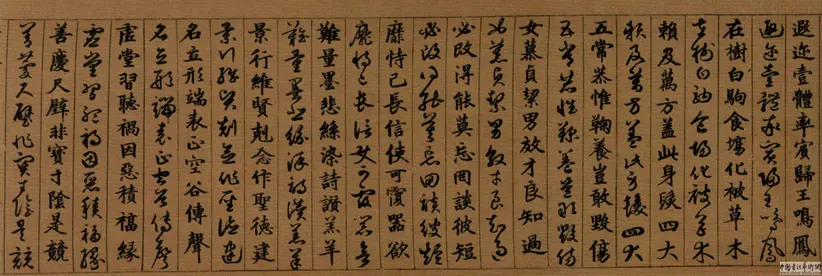 遐迩壹體率賓歸王鳴鳳
遐迩壹體率賓歸王鳴鳳
在樹白駒食場化被草木
在樹白駒食場化被草木
賴及萬方蓋此身髮四大
賴及萬方蓋此身髮四大
五常恭惟鞠養豈敢毀傷
五常恭惟鞠養豈敢毀傷
女慕貞絜男效才良知過
女慕貞絜男效才良知過
必改得能莫忘罔談彼短
必改得能莫忘罔談彼短
靡恃己長信使可覆器欲
靡恃己長信使可覆器欲
難量墨悲絲染詩讚羔羊
難量墨悲絲染詩讚羔羊
景行維賢剋念作聖德建
景行維賢剋念作聖德建
名立形端表正空谷傳聲
名立形端表正空谷傳聲
虛堂習聽禍因惡積福緣
虛堂習聽禍因惡積福緣
善慶尺璧非寶寸陰是競
善慶尺璧非寶寸陰是競